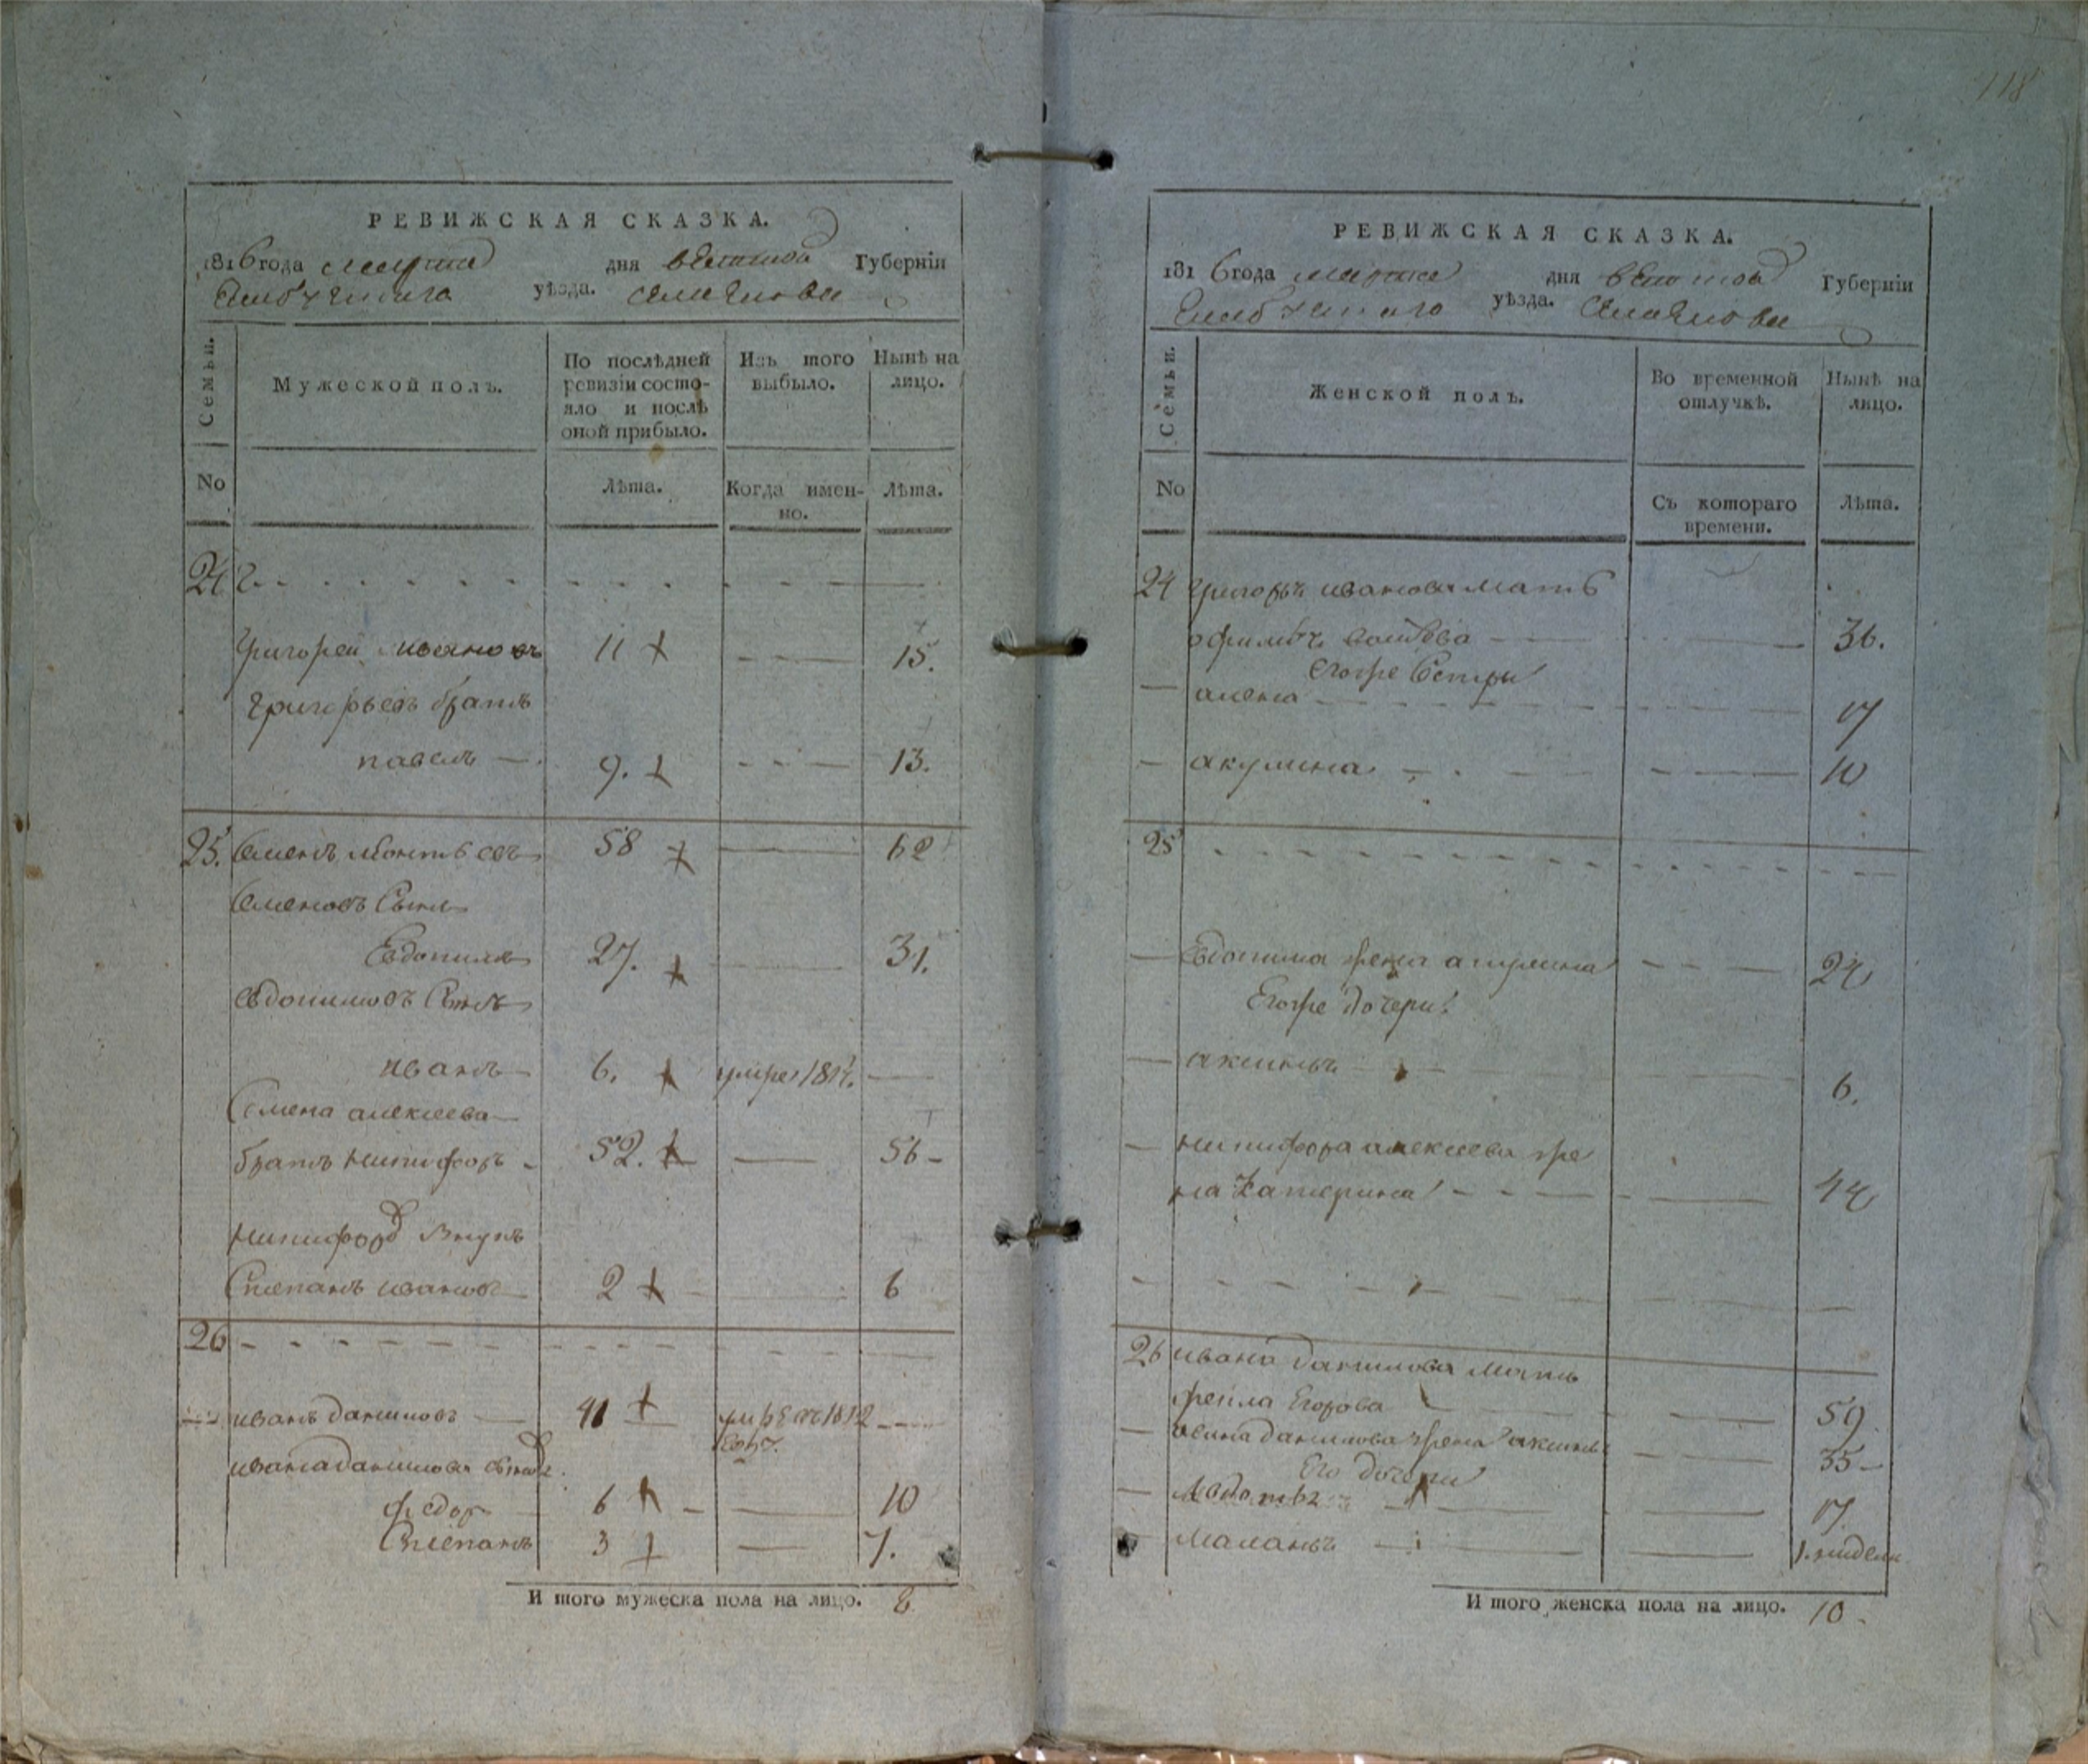 118
РЕВИЖСКАЯ СКАЗКА.
1816 года марта дня вятской Губерніи
Елабужскаго уѣзда.
Семьи. Мужеской полъ. По послѣдней ревизіи состояло и послѣ оной прибыло. Изъ того выбыло. Нынѣ на лицо.
No Лѣта. Когда именно. Лѣта.
24
Григорей ивановъ 11 15.
Григорьевъ братъ
павелъ 9. 13.
25. Семенъ 58 62
Семеновъ Сынъ
Евдокимъ 27. 31.
Евдокимовъ Сынъ
иванъ 6. умре
Семена алексеева
братъ никифоръ 52. 56
никифора внукъ
Степанъ ивановъ 2 6
26
иванъ даниловъ 41 1812
ивана данилова
федоръ 6 10
Степанъ 3 7.
И того мужеска пола на лицо. 8
РЕВИЖСКАЯ СКАЗКА.
1816 года марта дня вятской Губерніи
Елабужскаго уѣзда.
Семьи. Женской полъ. Во временной отлучкѣ. Нынѣ на лицо.
No Съ котораго времени. Лѣта.
24 Григорья иванова мать
36.
Егоже Сестры
алена 17
акулина 10
25
Евдокима жена акулина 24
Егоже дочери
аксинья 6.
никифора алексеева же
на Катерина 44
26 ивана данилова мать
фекла Егорова 59
ивана данилова жена аксинья 35
Его дочери
17
Маланья 1. недели
И того женска пола на лицо. 10